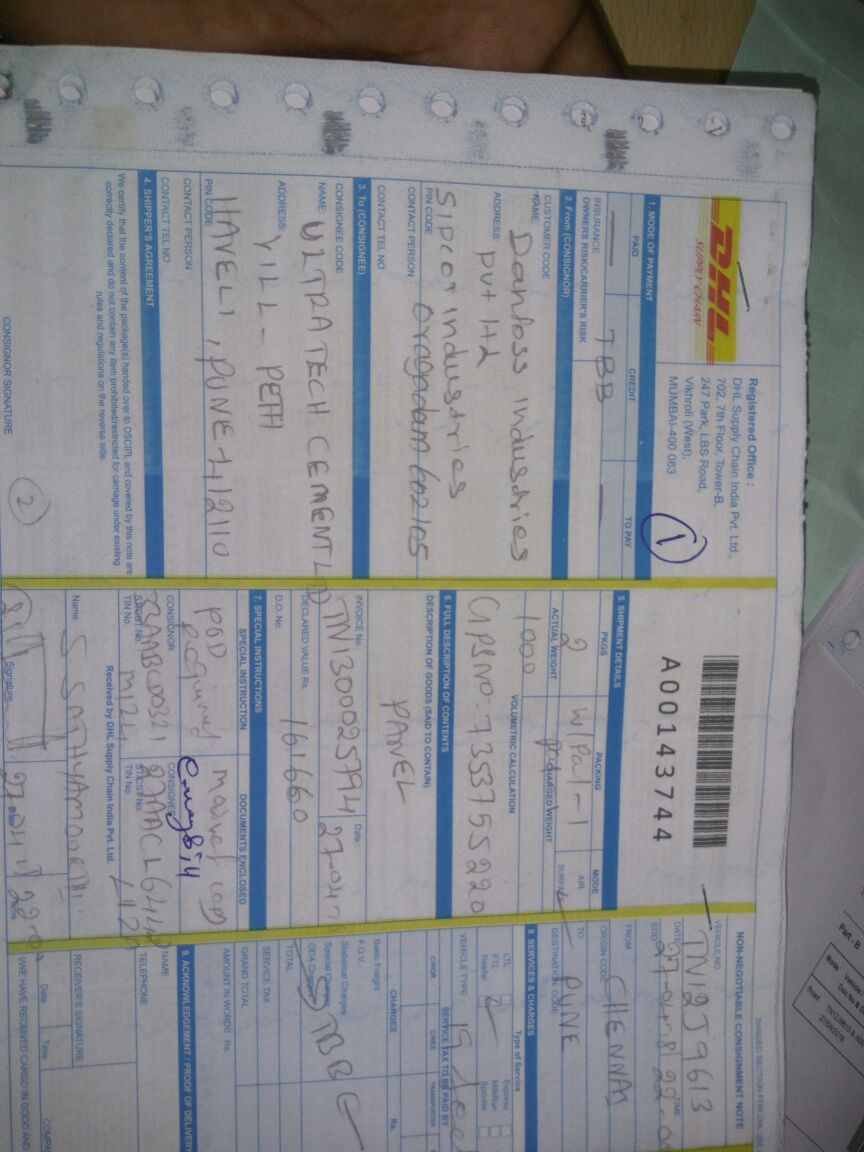 DHL
SUPPLY CHAIN
Registered Office :
DHL Supply Chain India Pvt. Ltd.,
702, 7th Floor, Tower-B,
247 Park, LBS Road,
Vikhroli (West),
MUMBAI-400 083
1
1. MODE OF PAYMENT
PAID CREDIT TO PAY
TBB
INSURANCE
OWNERS RISK/CARRIER'S RISK
2. From (CONSIGNOR)
CUSTOMER CODE
NAME: Danfoss Industries
ADDRESS: Pvt Ltd
Sipcot industries
PIN CODE oragadam 602105
CONTACT PERSON
CONTACT TEL NO
3. To (CONSIGNEE)
CONSIGNEE CODE
NAME: ULTRATECH CEMENT LTD
ADDRESS: VILL - PETH
HAVELI, PUNE-412110
PIN CODE
CONTACT PERSON
CONTACT TEL NO
4. SHIPPER'S AGREEMENT
We certify that the content of the package(s) handed over to DSCIPL and covered by this note are
correctly declared and do not contain any item prohibited/restricted for carriage under existing
rules and regulations on the reverse side.
CONSIGNOR SIGNATURE
2
A00143744
5. SHIPMENT DETAILS
PKGS PACKING MODE
2 W/Pal-1 AIR
ACTUAL WEIGHT CHARGED WEIGHT SURFACE
1000
VOLUMETRIC CALCULATION
GPS NO: 7353755220
6. FULL DESCRIPTION OF CONTENTS
DESCRIPTION OF GOODS (SAID TO CONTAIN)
PANEL
INVOICE No.: Date:
TN1300025794 27-04-
DECLARED VALUE Rs.
161660
D.O. No.
7. SPECIAL INSTRUCTIONS
SPECIAL INSTRUCTION DOCUMENTS ENCLOSED
POD
Required
CONSIGNOR CONSIGNEE
TIN No. TIN No.
Received by DHL Supply Chain India Pvt. Ltd.
Name
Signature Date Time
27-04
SHADED SECTION FOR DHL USE
NON-NEGOTIABLE CONSIGNMENT NOTE
VEHICLE NO TN12J9613
DATE TIME
27-04-18
FROM CHENNAI
ORIGIN CODE
TO PUNE
DESTINATION CODE
8. SERVICES & CHARGES
Type of Service
LTL Express
FTL MilkRun
Reefer
VEHICLE TYPE 19 feet
SERVICE TAX TO BE PAID BY
CNOR CNEE TRANSPORTER
CHARGES Rs.
Basic Freight
F.O.V.
Statistical Charges
Special
ODA
TBB
TOTAL
SERVICE TAX
GRAND TOTAL
AMOUNT IN WORDS Rs.
9. ACKNOWLEDGEMENT / PROOF OF DELIVERY
NAME
TELEPHONE
RECEIVER'S SIGNATURE
Date Time
I/WE HAVE RECEIVED CARGO IN GOOD AND
Part - B
Mode
Road
27/04/2018